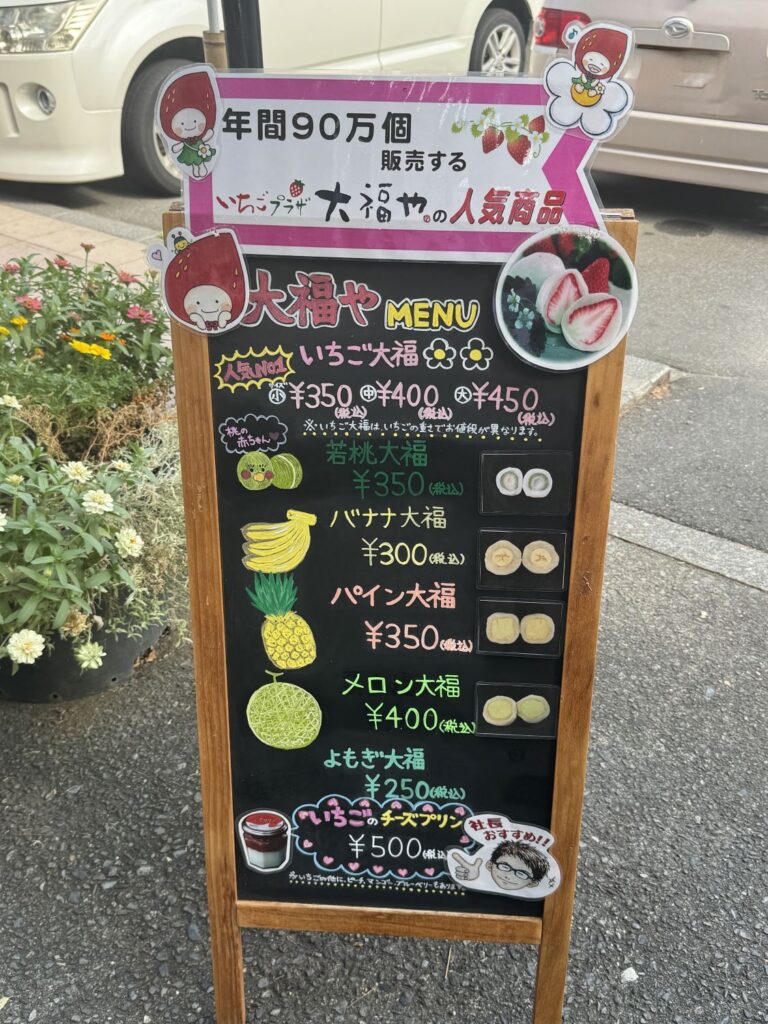 年間90万個
販売する
いちごプラザ 大福や の人気商品
大福や MENU
人気No.1 いちご大福
サイズ 小 ¥350(税込) 中 ¥400(税込) 大 ¥450(税込)
※いちご大福は、いちごの重さでお値段が異なります。
桃の赤ちゃん
若桃大福
¥350(税込)
バナナ大福
¥300(税込)
パイン大福
¥350(税込)
メロン大福
¥400(税込)
よもぎ大福
¥250(税込)
いちごのチーズプリン
¥500(税込)
社長おすすめ!!
※いちごの他に、ピーチ、マンゴー、ブルーベリーもあります